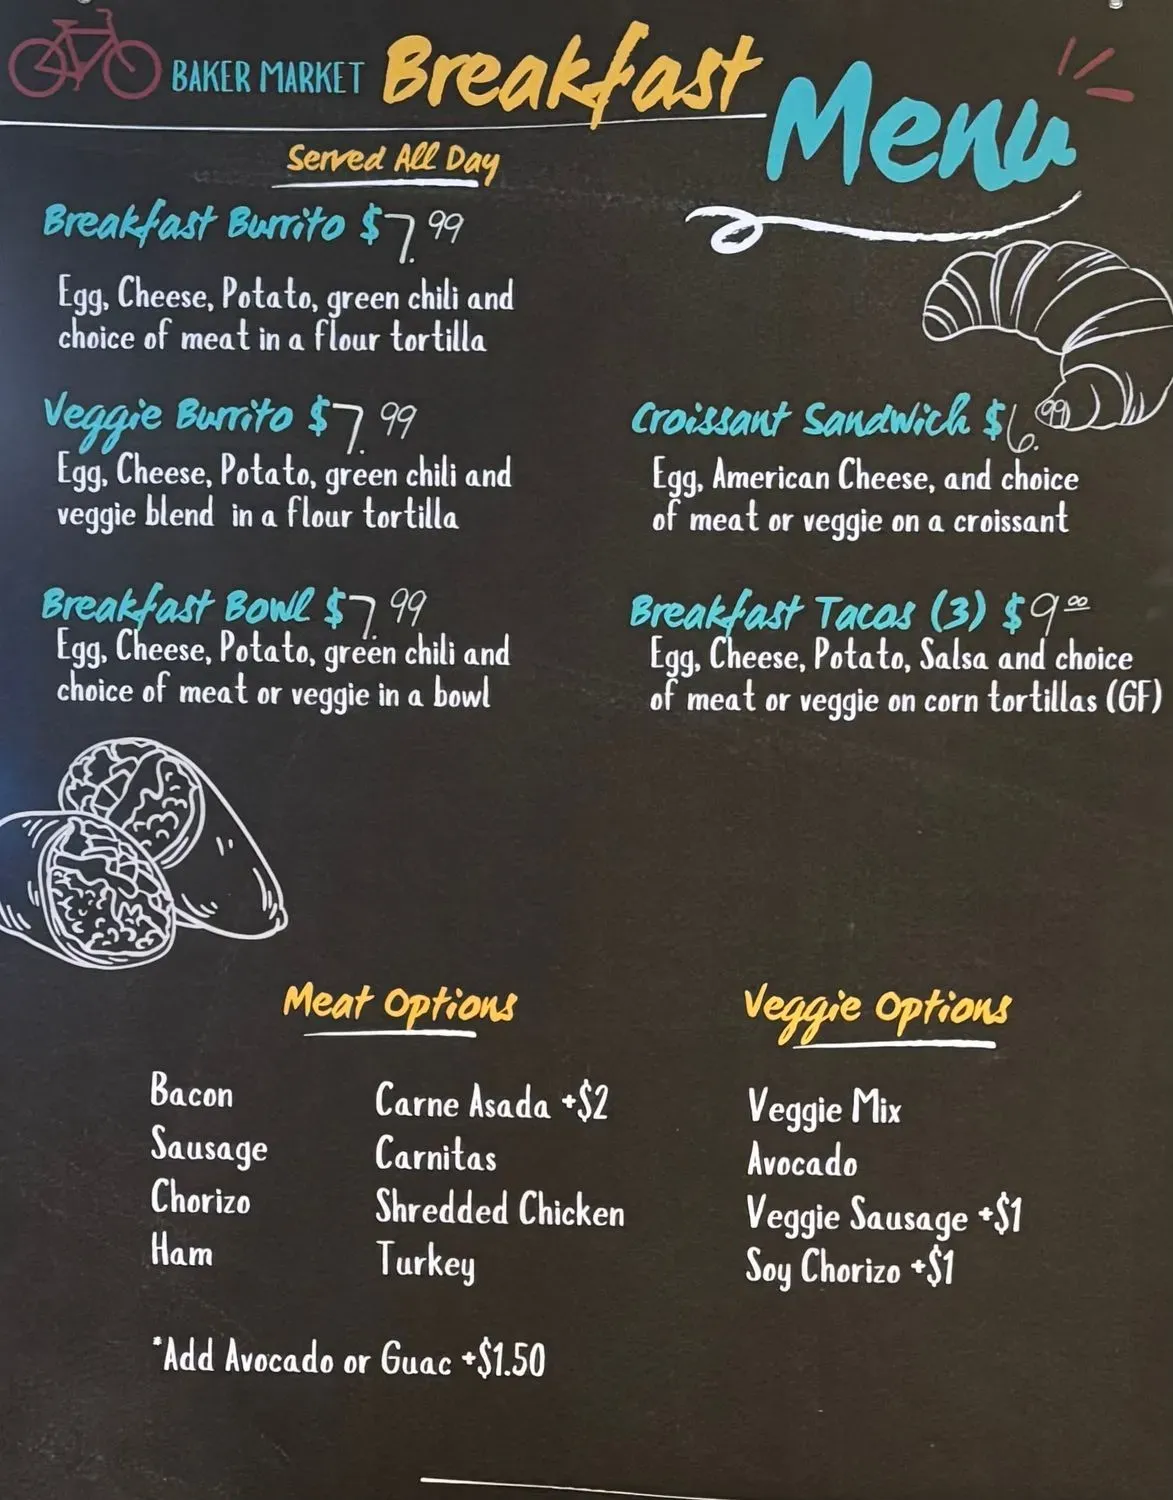 BAKER MARKET Breakfast Menu
Served All Day
Breakfast Burrito $7.99
Egg, Cheese, Potato, green chili and
choice of meat in a flour tortilla
Veggie Burrito $7.99
Egg, Cheese, Potato, green chili and
veggie blend in a flour tortilla
Breakfast Bowl $7.99
Egg, Cheese, Potato, green chili and
choice of meat or veggie in a bowl
Croissant Sandwich $6.99
Egg, American Cheese, and choice
of meat or veggie on a croissant
Breakfast Tacos (3) $9.00
Egg, Cheese, Potato, Salsa and choice
of meat or veggie on corn tortillas (GF)
Meat Options
Bacon
Sausage
Chorizo
Ham
Carne Asada +$2
Carnitas
Shredded Chicken
Turkey
*Add Avocado or Guac +$1.50
Veggie Options
Veggie Mix
Avocado
Veggie Sausage +$1
Soy Chorizo +$1